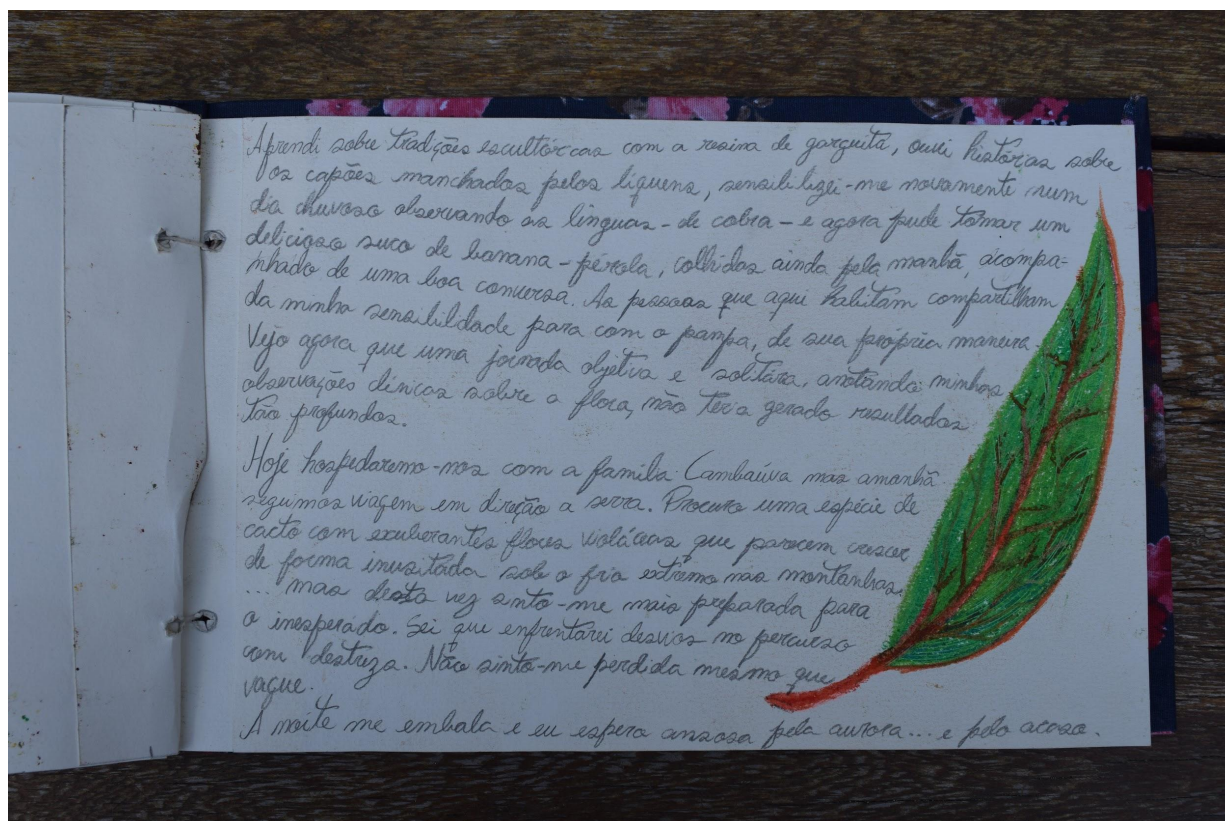 Aprendi sobre tradições escultóricas com a resina de garguitá, ouvi histórias sobre
os capões manchados pelos líquens, sensibilizei-me novamente num
dia chuvoso observando as línguas-de cobra - e agora pude tomar um
delicioso suco de banana-pérola, colhidas ainda pela manhã, acompa-
nhado de uma boa conversa. As pessoas que aqui habitam compartilham
da minha sensibilidade para com o pampa, de sua própria maneira.
Vejo agora que uma jornada objetiva e solitária, anotando minhas
observações clínicas sobre a flora, não teria gerado resultados
tão profundos.
Hoje hospedaremo-nos com a família Cambaúva mas amanhã
seguimos viagem em direção a serra. Procuro uma espécie de
cacto com exuberantes flores violáceas que parecem crescer
de forma inusitada sob o frio extremo nas montanhas.
... mas desta vez sinto-me mais preparada para
o inesperado. Sei que enfrentarei desvios no percurso
com destreza. Não sinto-me perdida mesmo que
vague.
A noite me embala e eu espero ansiosa pela aurora... e pelo acaso.